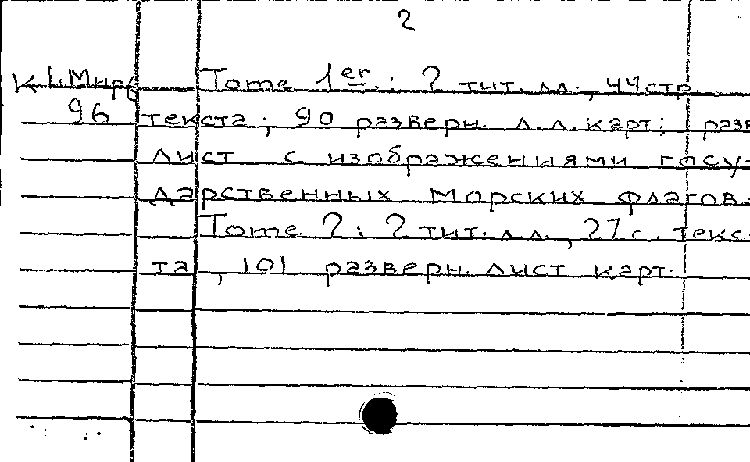 2
К 1.Мир Tome 1er.: 2 тит. лл., 44стр
96 текста; 90 разверн. л.л. карт; разв
лист с изображениями госу-
дарственных морских флагов.
Tome 2: 2 тит. лл., 27 с. текс-
та, 101 разверн. лист карт.